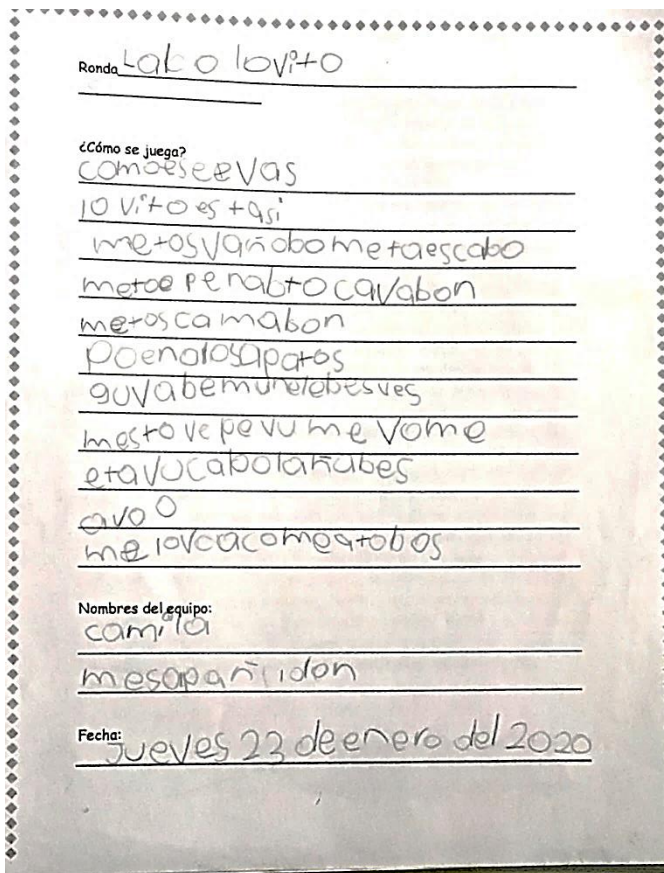 Ronda Lobo lovito
¿Cómo se juega?
comoeseevas
lo vito es tasi
metosvañobo metaescabo
metoe penabtocavabon
metoscamabon
poenolosapatos
guvabemunelebesves
mestovepevumevome
etavucabolanubes
avoo
melovcacomeatobos
Nombres del equipo:
camila
mesapañridon
Fecha: Jueves 23 deenero del 2020